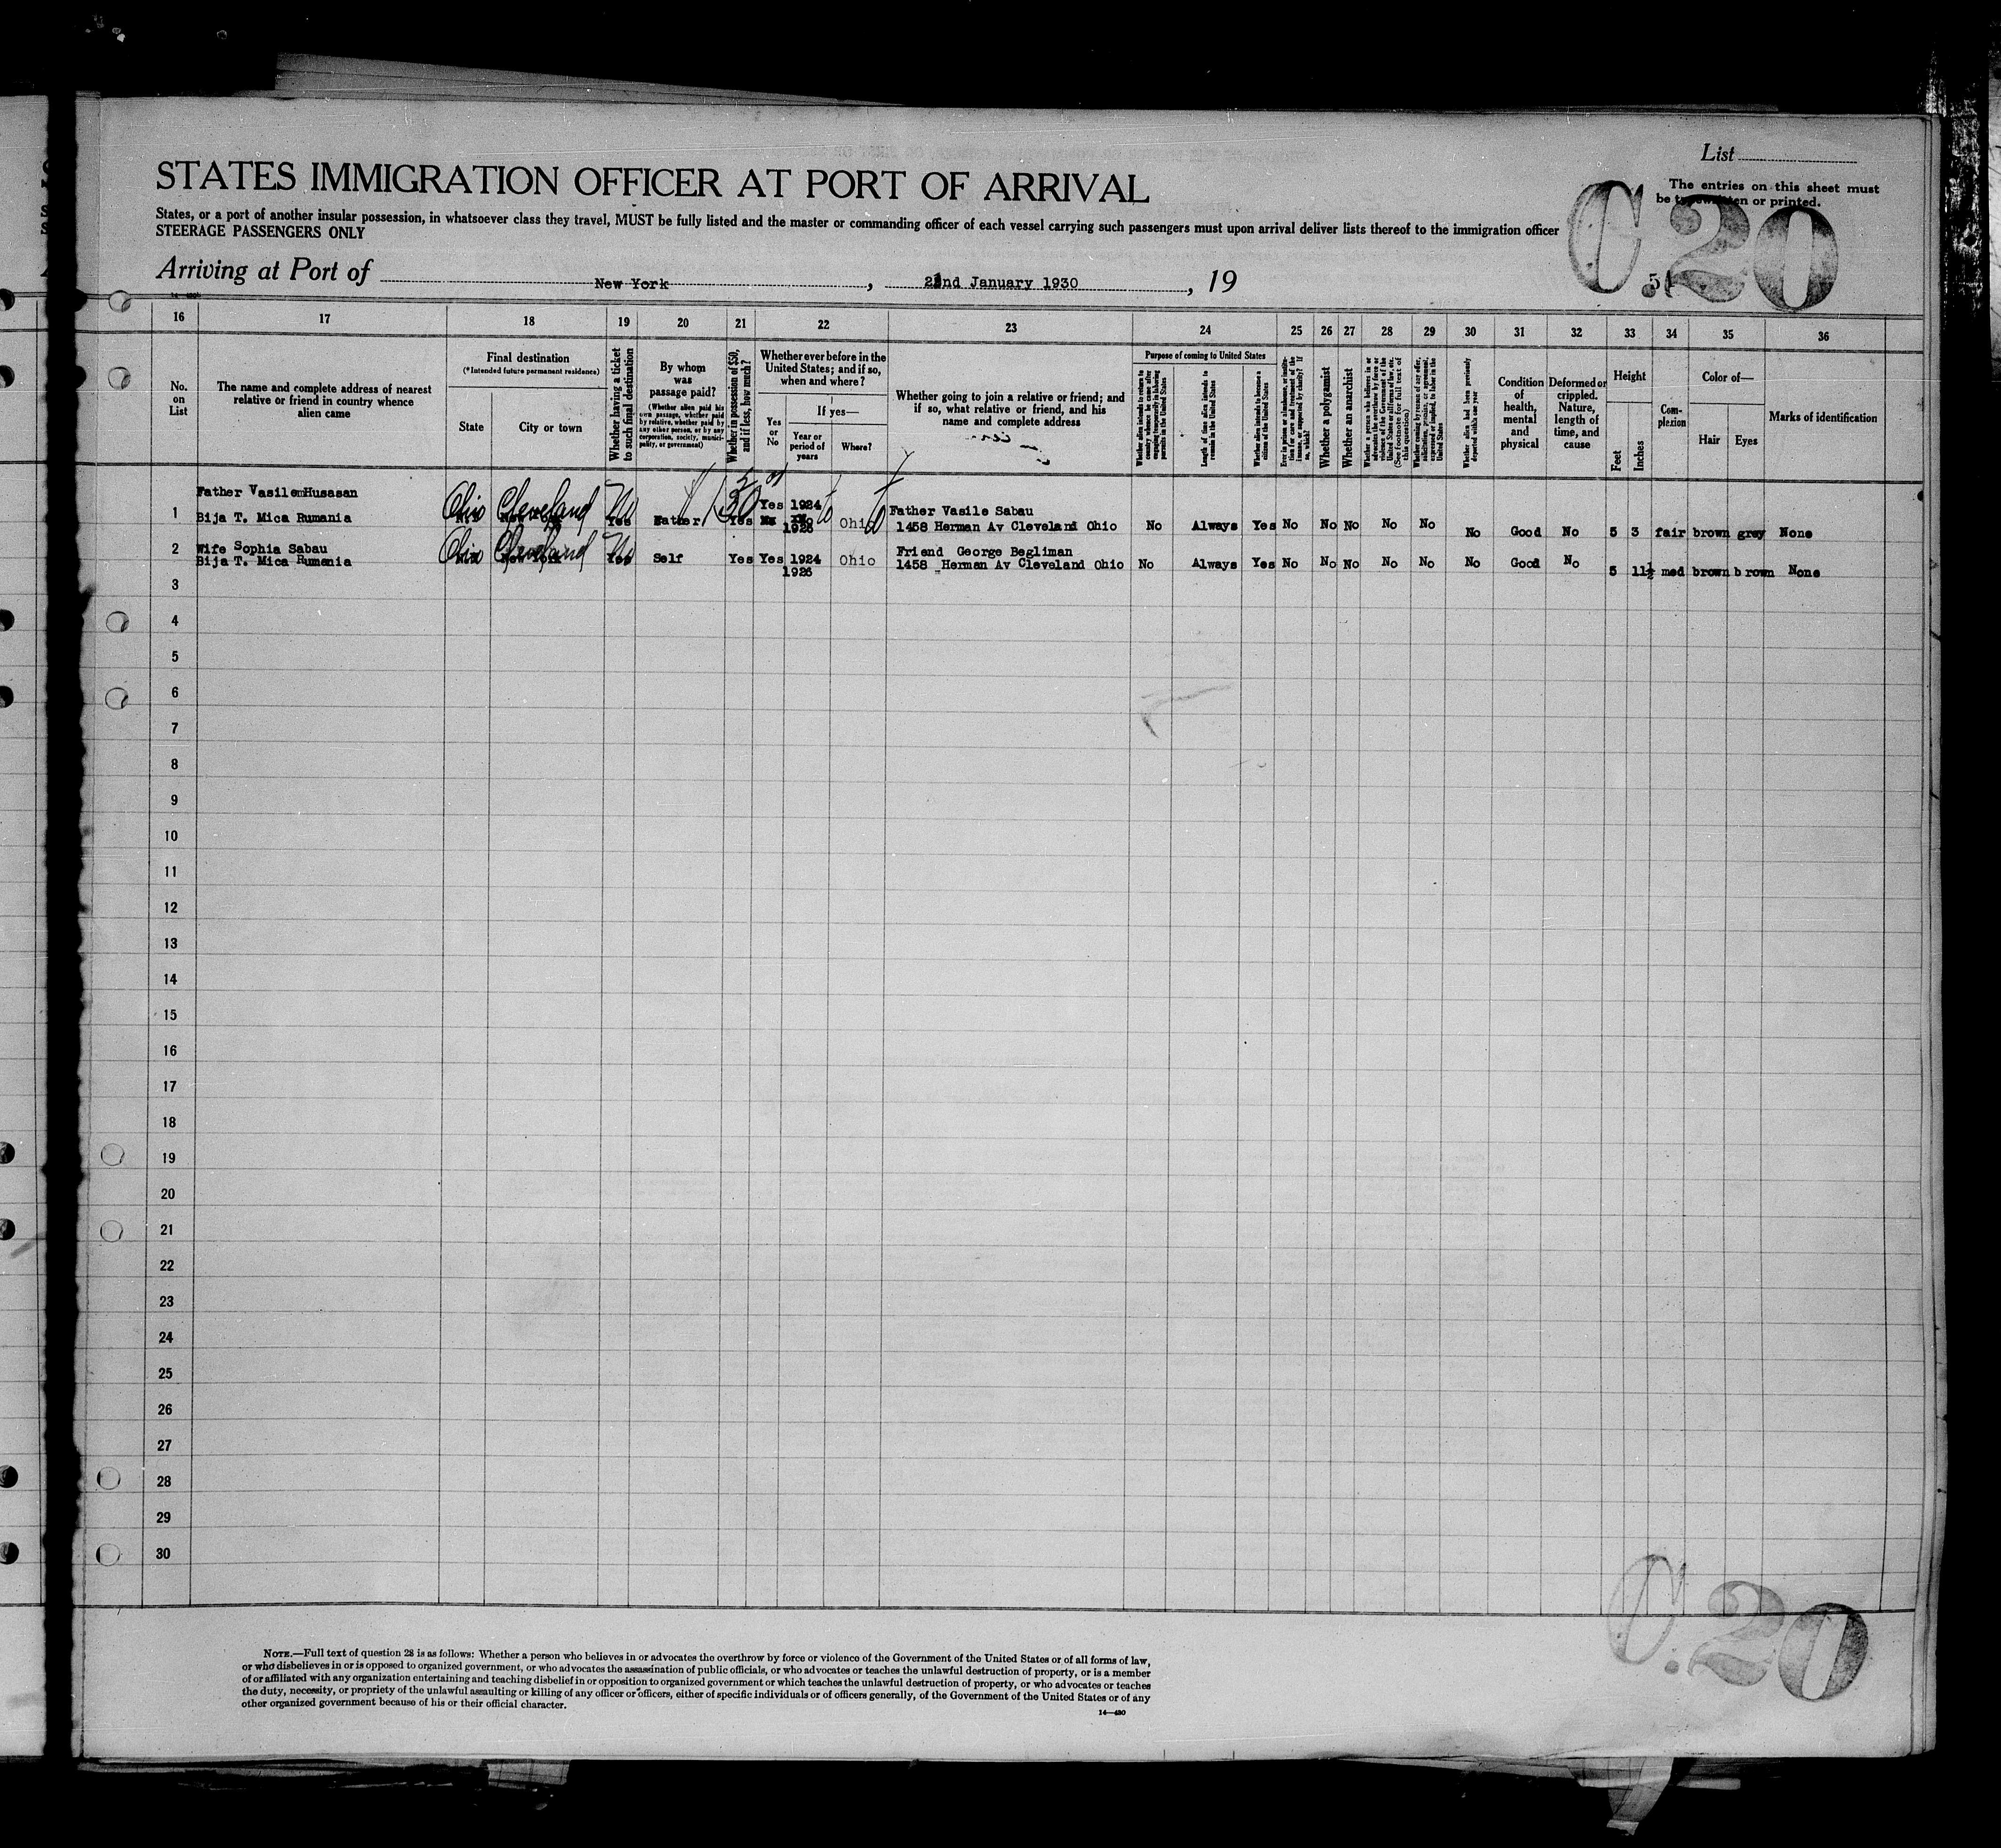 List
The entries on this sheet must
be typewritten or printed.
C.20
STATES IMMIGRATION OFFICER AT PORT OF ARRIVAL
States, or a port of another insular possession, in whatsoever class they travel, MUST be fully listed and the master or commanding officer of each vessel carrying such passengers must upon arrival deliver lists thereof to the immigration officer
STEERAGE PASSENGERS ONLY
Arriving at Port of New York, 22nd January 1930, 19
16 17 18 19 20 21 22 23 24 25 26 27 28 29 30 31 32 33 34 35 36
No. on List
The name and complete address of nearest
relative or friend in country whence
alien came
Final destination
(*Intended future permanent residence)
State
City or town
Whether having a ticket
to such final destination
By whom
was
passage paid?
(Whether alien paid his
own passage, whether paid
by relative, whether paid by
any other person, or by any
corporation, society, munici-
pality, or government)
Whether in possession of $50,
and if less, how much?
Whether ever before in the
United States; and if so,
when and where?
Yes
or
No
If yes—
Year or
period of
years
Where?
Whether going to join a relative or friend; and
if so, what relative or friend, and his
name and complete address
Purpose of coming to United States
Whether alien intends to return to
Length of time alien intends to
remain in the United States
Whether alien intends to become a
citizen of the United States
Whether a polygamist
Whether an anarchist
Whether alien had been previously
deported within one year
Condition
of
health,
mental
and
physical
Deformed or
crippled.
Nature,
length of
time, and
cause
Height
Feet
Inches
Com-
plexion
Color of—
Hair
Eyes
Marks of identification
Father Vasile Husasan
1 Bija T. Mica Rumania Ohio Cleveland No Yes Father 50 Yes Yes 1924 1926 Ohio
Father Vasile Sabau
1458 Herman Av Cleveland Ohio No Always Yes No No No No No No Good No 5 3 fair brown grey None
2 Wife Sophia Sabau
Bija T. Mica Rumania Ohio Cleveland No Yes Self Yes Yes 1924 1926 Ohio
Friend George Begliman
1458 Herman Av Cleveland Ohio No Always Yes No No No No No No Good No 5 11½ med brown brown None
3
4
5
6
7
8
9
10
11
12
13
14
15
16
17
18
19
20
21
22
23
24
25
26
27
28
29
30
C.20
NOTE.—Full text of question 28 is as follows: Whether a person who believes in or advocates the overthrow by force or violence of the Government of the United States or of all forms of law,
or who disbelieves in or is opposed to organized government, or who advocates the assassination of public officials, or who advocates or teaches the unlawful destruction of property, or is a member
of or affiliated with any organization entertaining and teaching disbelief in or opposition to organized government or which teaches the unlawful destruction of property, or who advocates or teaches
the duty, necessity, or propriety of the unlawful assaulting or killing of any officer or officers, either of specific individuals or of officers generally, of the Government of the United States or of any
other organized government because of his or their official character.
14—430